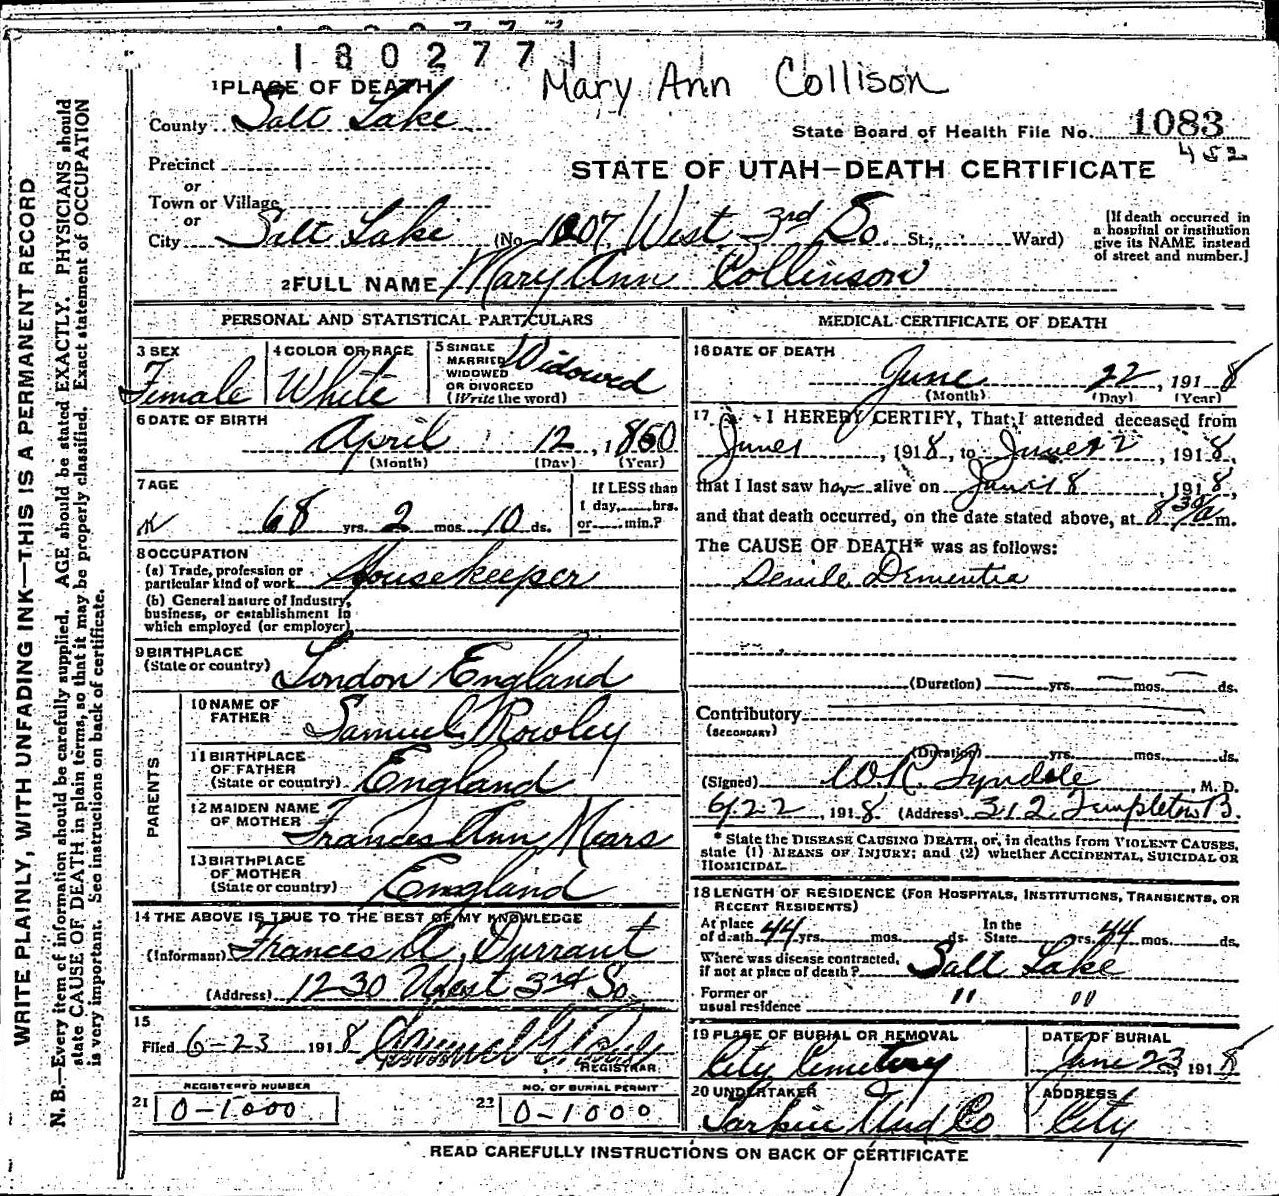 1802771
Mary Ann Collison
1 PLACE OF DEATH
County Salt Lake
State Board of Health File No. 1083
452
Precinct
or
STATE OF UTAH—DEATH CERTIFICATE
Town or Village
or
City Salt Lake (No. 1007 West 3rd So. St.; Ward)
[If death occurred in
a hospital or institution
give its NAME instead
of street and number.]
2 FULL NAME Mary Ann Collinson
PERSONAL AND STATISTICAL PARTICULARS
3 SEX
Female
4 COLOR OR RACE
White
5 SINGLE
MARRIED
WIDOWED
OR DIVORCED
(Write the word)
Widowed
6 DATE OF BIRTH
April 12, 1850
(Month) (Day) (Year)
7 AGE
68 yrs. 2 mos. 10 ds.
If LESS than
1 day, hrs.
or min.?
8 OCCUPATION
(a) Trade, profession or
particular kind of work Housekeeper
(b) General nature of Industry,
business, or establishment in
which employed (or employer)
9 BIRTHPLACE
(State or country) London England
PARENTS
10 NAME OF
FATHER Samuel Rowley
11 BIRTHPLACE
OF FATHER
(State or country) England
12 MAIDEN NAME
OF MOTHER Frances Ann Mears
13 BIRTHPLACE
OF MOTHER
(State or country) England
14 THE ABOVE IS TRUE TO THE BEST OF MY KNOWLEDGE
(Informant) Frances A. Durrant
(Address) 1230 West 3rd So.
15
Filed 6-23 1918
REGISTRAR
REGISTERED NUMBER
21 0-1000
NO. OF BURIAL PERMIT
22 0-1000
MEDICAL CERTIFICATE OF DEATH
16 DATE OF DEATH
June 22, 1918
(Month) (Day) (Year)
17 I HEREBY CERTIFY, That I attended deceased from
June 1, 1918, to June 22, 1918,
that I last saw her alive on June 18, 1918,
and that death occurred, on the date stated above, at 8 30 a m.
The CAUSE OF DEATH* was as follows:
Senile Dementia
(Duration) yrs. mos. ds.
Contributory
(SECONDARY)
(Duration) yrs. mos. ds.
(Signed) W.R. Tyndale, M. D.
6/22, 1918 (Address) 312 Templeton B.
* State the DISEASE CAUSING DEATH, or, in deaths from VIOLENT CAUSES,
state (1) MEANS OF INJURY; and (2) whether ACCIDENTAL, SUICIDAL OR
HOMICIDAL.
18 LENGTH OF RESIDENCE (FOR HOSPITALS, INSTITUTIONS, TRANSIENTS, OR
RECENT RESIDENTS)
At place
of death 44 yrs. mos. ds.
In the
State yrs. 44 mos. ds.
Where was disease contracted,
if not at place of death? Salt Lake
Former or
usual residence " "
19 PLACE OF BURIAL OR REMOVAL
City Cemetery
DATE OF BURIAL
June 23, 1918
20 UNDERTAKER
Larkin Und Co
ADDRESS
City
READ CAREFULLY INSTRUCTIONS ON BACK OF CERTIFICATE
WRITE PLAINLY, WITH UNFADING INK—THIS IS A PERMANENT RECORD
N. B.—Every item of information should be carefully supplied. AGE should be stated EXACTLY. PHYSICIANS should
state CAUSE OF DEATH in plain terms, so that it may be properly classified. Exact statement of OCCUPATION
is very important. See instructions on back of certificate.